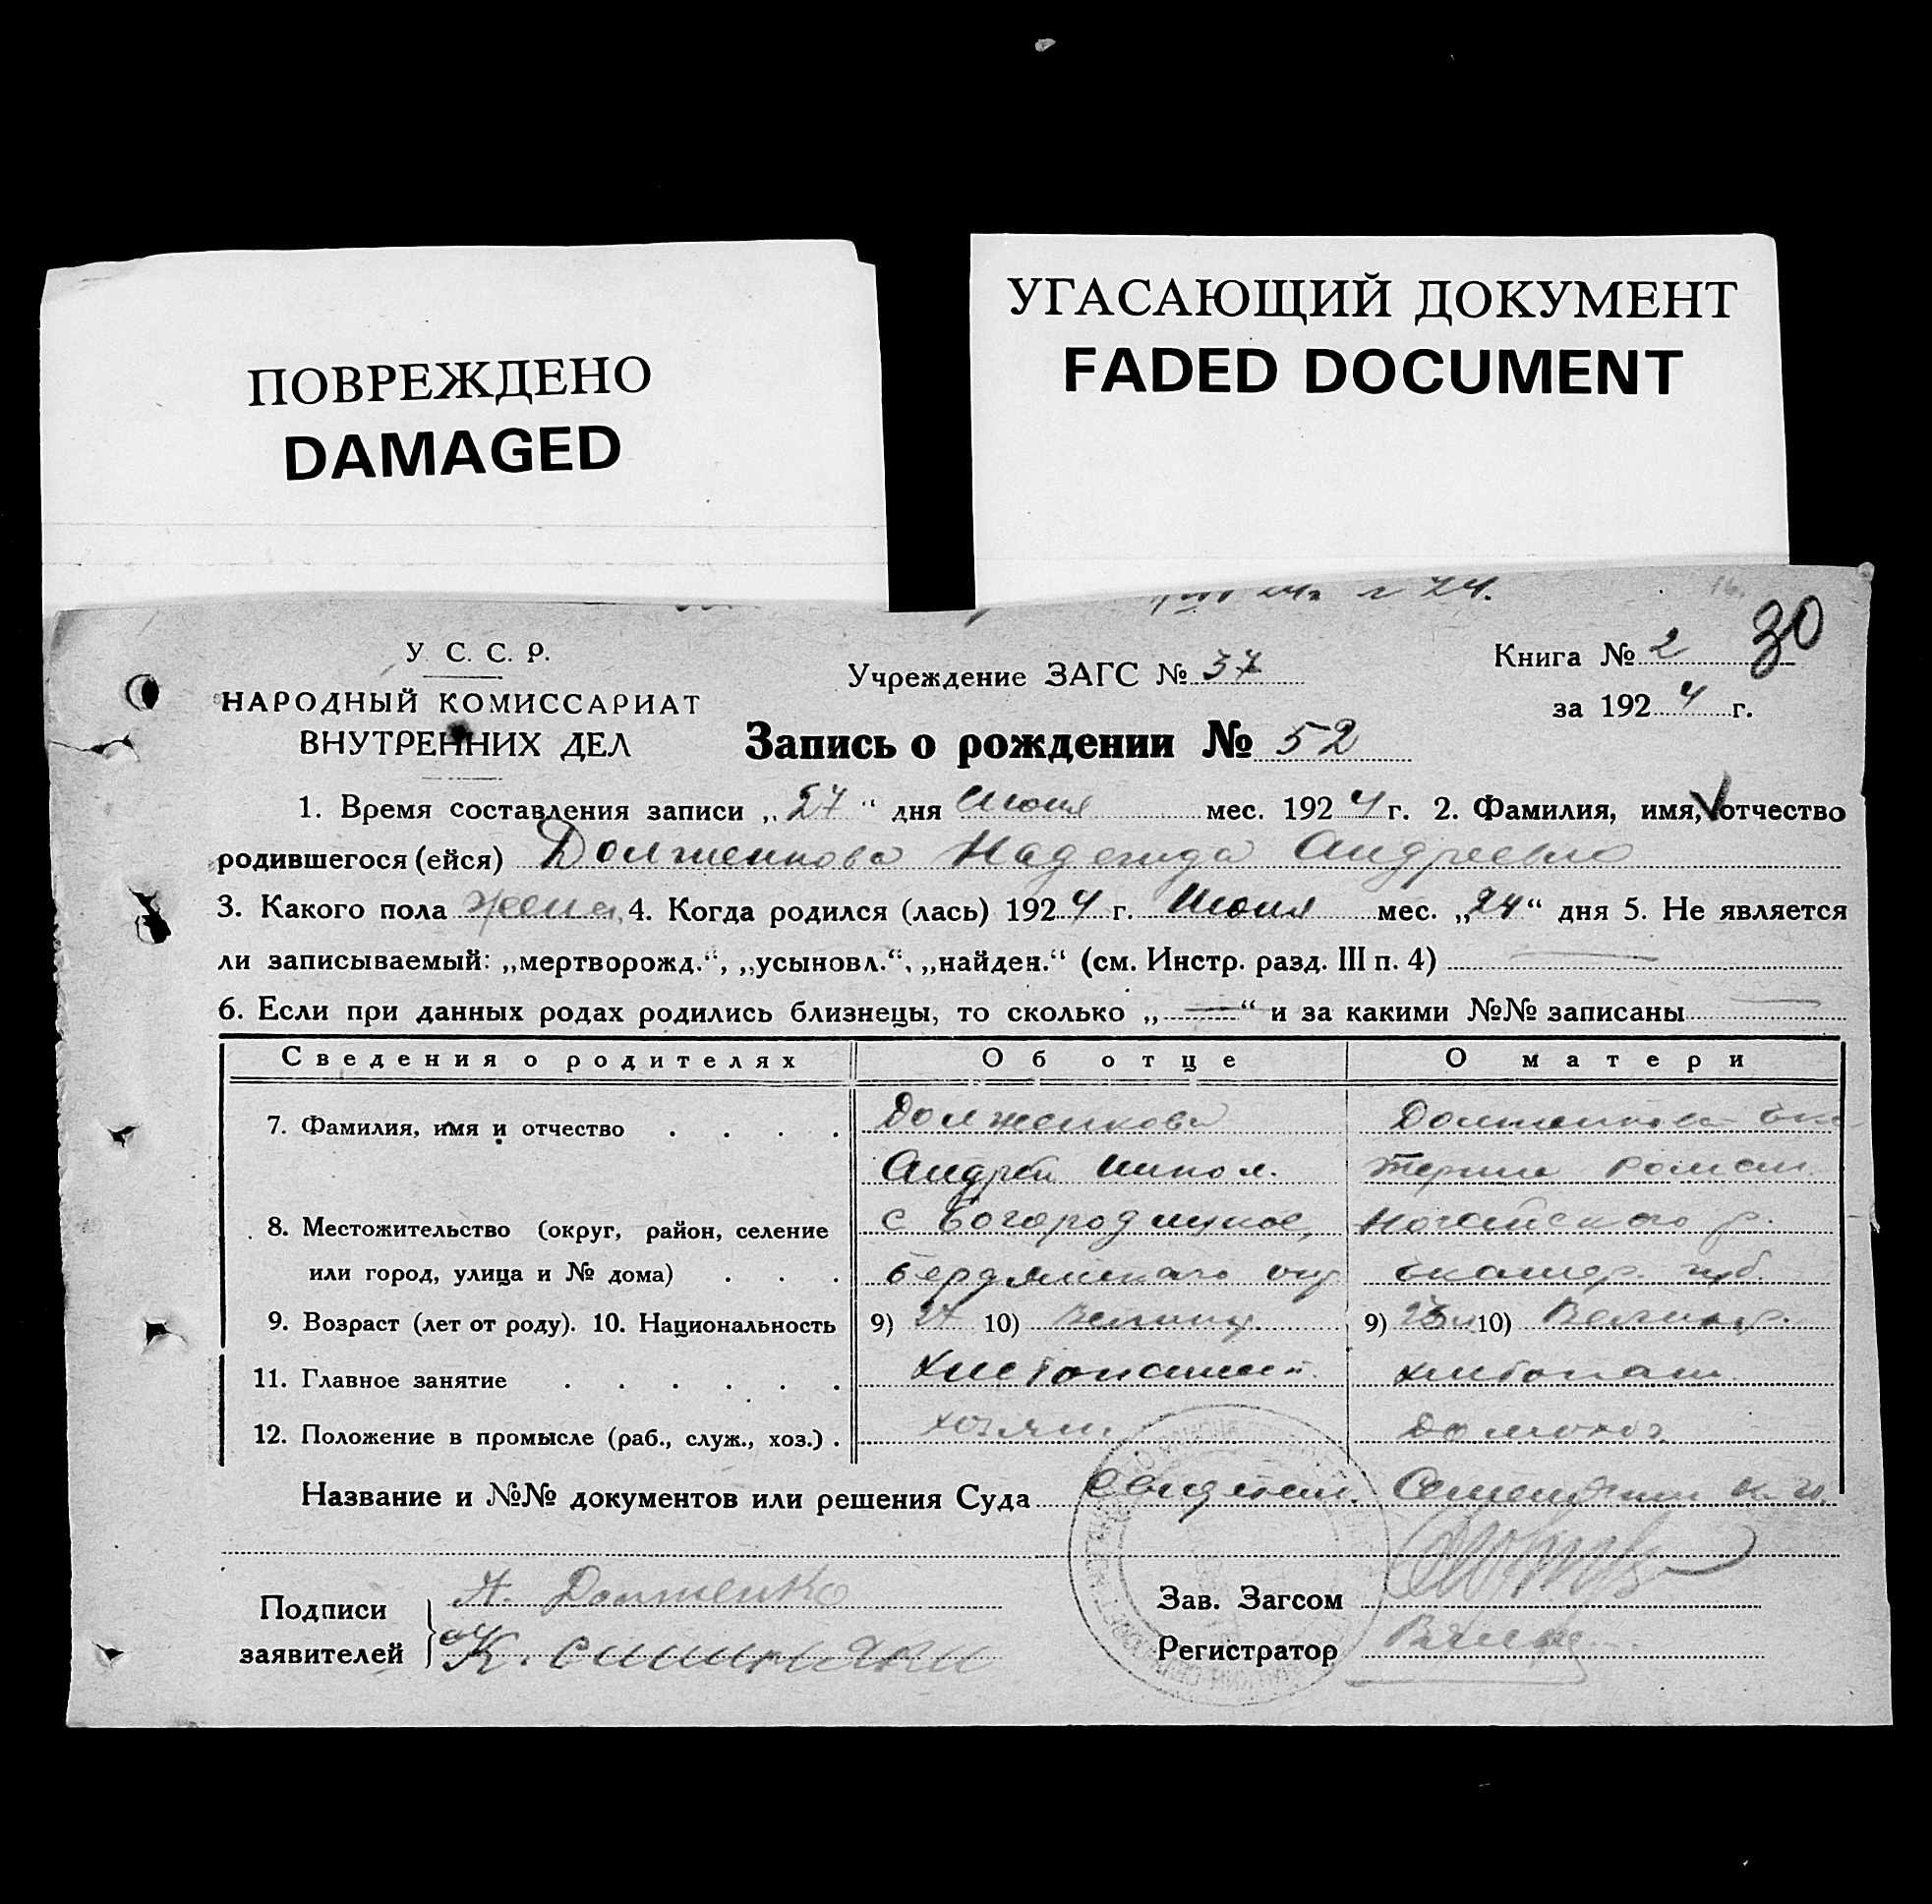 ПОВРЕЖДЕНО
DAMAGED
УГАСАЮЩИЙ ДОКУМЕНТ
FADED DOCUMENT
30
У. С. С. Р.
НАРОДНЫЙ КОМИССАРИАТ
ВНУТРЕННИХ ДЕЛ
Учреждение ЗАГС № 37
Книга № 2
за 1924 г.
Запись о рождении № 52
1. Время составления записи „27“ дня Июня мес. 1924 г. 2. Фамилия, имя, отчество
родившегося (ейся) Долженкова Надежда Андреевна
3. Какого пола жен. 4. Когда родился (лась) 1924 г. Июня мес. „24“ дня 5. Не является
ли записываемый: „мертворожд.“, „усыновл.“, „найден.“ (см. Инстр. разд. III п. 4)
6. Если при данных родах родились близнецы, то сколько „—“ и за какими №№ записаны —
Сведения о родителях Об отце О матери
7. Фамилия, имя и отчество Долженкова Долженкова Ека
Андрей терина Роман.
8. Местожительство (округ, район, селение с Богородицкое, Ногайского р.
или город, улица и № дома) Бердянского окр Екатер. губ.
9. Возраст (лет от роду). 10. Национальность 9) 27 10) 9) 10)
11. Главное занятие хлебопашец хлебопаш.
12. Положение в промысле (раб., служ., хоз.) хозяин домохоз.
Название и №№ документов или решения Суда
Подписи А. Долженко Зав. Загсом
заявителей К. Регистратор